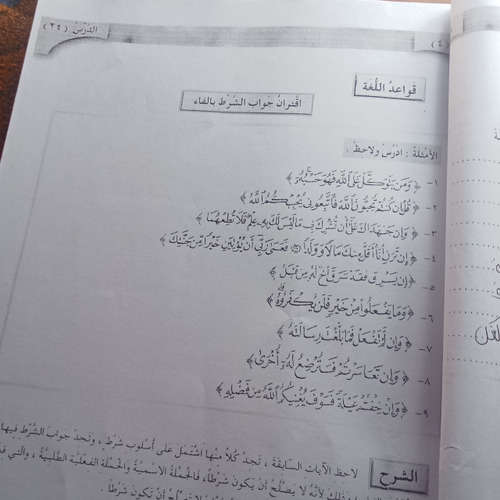 الدَّرْسُ (٢٤)
قواعدُ اللُّغَة
اقترانُ جوابِ الشَّرْطِ بالفاءِ
الأمْثِلَةُ : ادْرُسْ ولاحِظْ .
١- ﴿ وَمَن يَتَوَكَّلْ عَلَى اللَّهِ فَهُوَ حَسْبُهُ ﴾
٢- ﴿ قُلْ إِن كُنتُمْ تُحِبُّونَ اللَّهَ فَاتَّبِعُونِي يُحْبِبْكُمُ اللَّهُ ﴾
٣- ﴿ وَإِن جَاهَدَاكَ عَلَىٰ أَن تُشْرِكَ بِي مَا لَيْسَ لَكَ بِهِ عِلْمٌ فَلَا تُطِعْهُمَا ﴾
٤- ﴿ إِن تَرَنِ أَنَا أَقَلَّ مِنكَ مَالًا وَوَلَدًا ۝ فَعَسَىٰ رَبِّي أَن يُؤْتِيَنِ خَيْرًا مِّن جَنَّتِكَ ﴾
٥- ﴿ إِن يَسْرِقْ فَقَدْ سَرَقَ أَخٌ لَّهُ مِن قَبْلُ ﴾
٦- ﴿ وَمَا يَفْعَلُوا مِنْ خَيْرٍ فَلَن يُكْفَرُوهُ ﴾
٧- ﴿ وَإِن لَّمْ تَفْعَلْ فَمَا بَلَّغْتَ رِسَالَتَهُ ﴾
٨- ﴿ وَإِن تَعَاسَرْتُمْ فَسَتُرْضِعُ لَهُ أُخْرَىٰ ﴾
٩- ﴿ وَإِنْ خِفْتُمْ عَيْلَةً فَسَوْفَ يُغْنِيكُمُ اللَّهُ مِن فَضْلِهِ ﴾
الشرح
لاحظ الآيات السابقة ، تجدْ كُلاًّ منها اشتملَ على أسلوبِ شرطٍ ، وتجدْ جوابَ الشَّرْطِ فيها
لأنّه لا يصلُحُ أنْ يكونَ شرطاً، فالجملةُ الاسميةُ والجملةُ الفعليةُ الطلبيةُ ، والتي